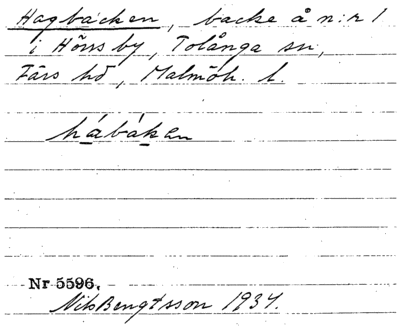 Hagbacken, backe å n:r 1
i Hörrs by, Tolånga sn,
Färs hd, Malmöh. l.
hábákan
Nr 5596.
Nils Bengtsson 1934.